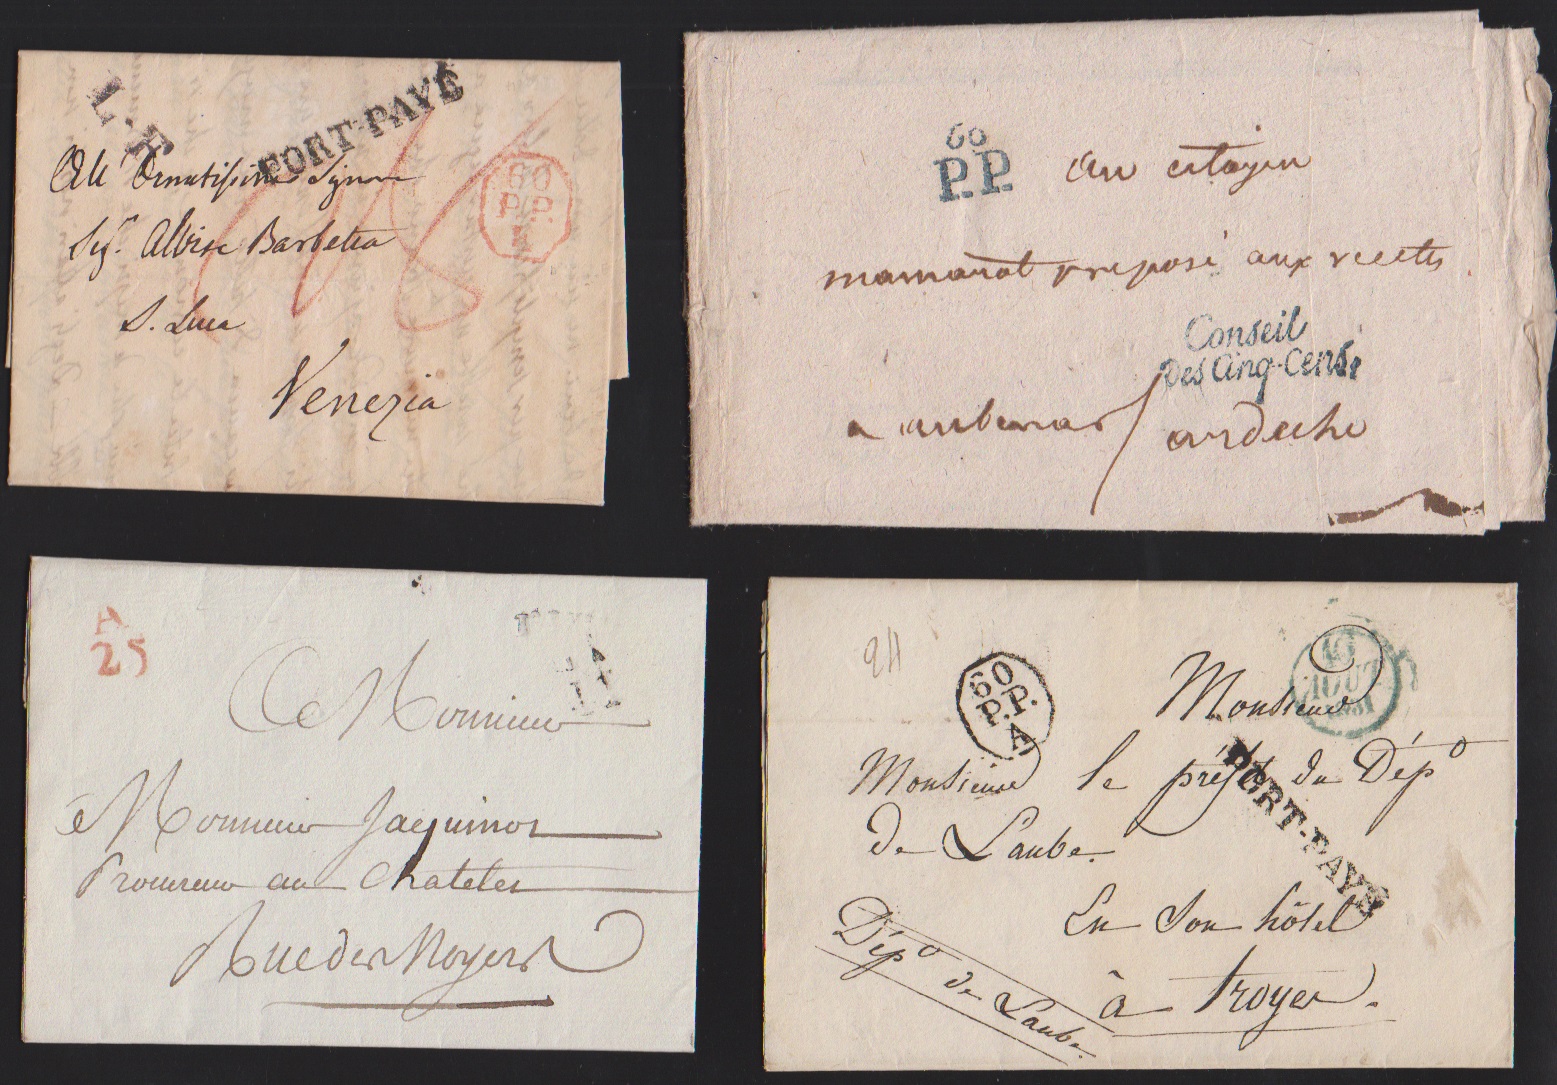 L.F.
PORT-PAYÉ
60
P.P.
All' Ornatissimo Signor
Sigr. Alvise Barbetta
S. Luca
Venezia
60
P.P.
au citoyen
mamarot preposé aux recettes
Conseil
Des Cinq-Cents
a aubenas / ardeche
A
25
A Monsieur
Monsieur Jaquinot
Procureur au Chatelet
Rue des Noyers
24
60
P.P.
A
16
AOUT
1831
Monsieur
Monsieur le préfet du Dépo
de Laube.
PORT-PAYÉ
En Son hôtel
à troyes.
Dépo de Laube.